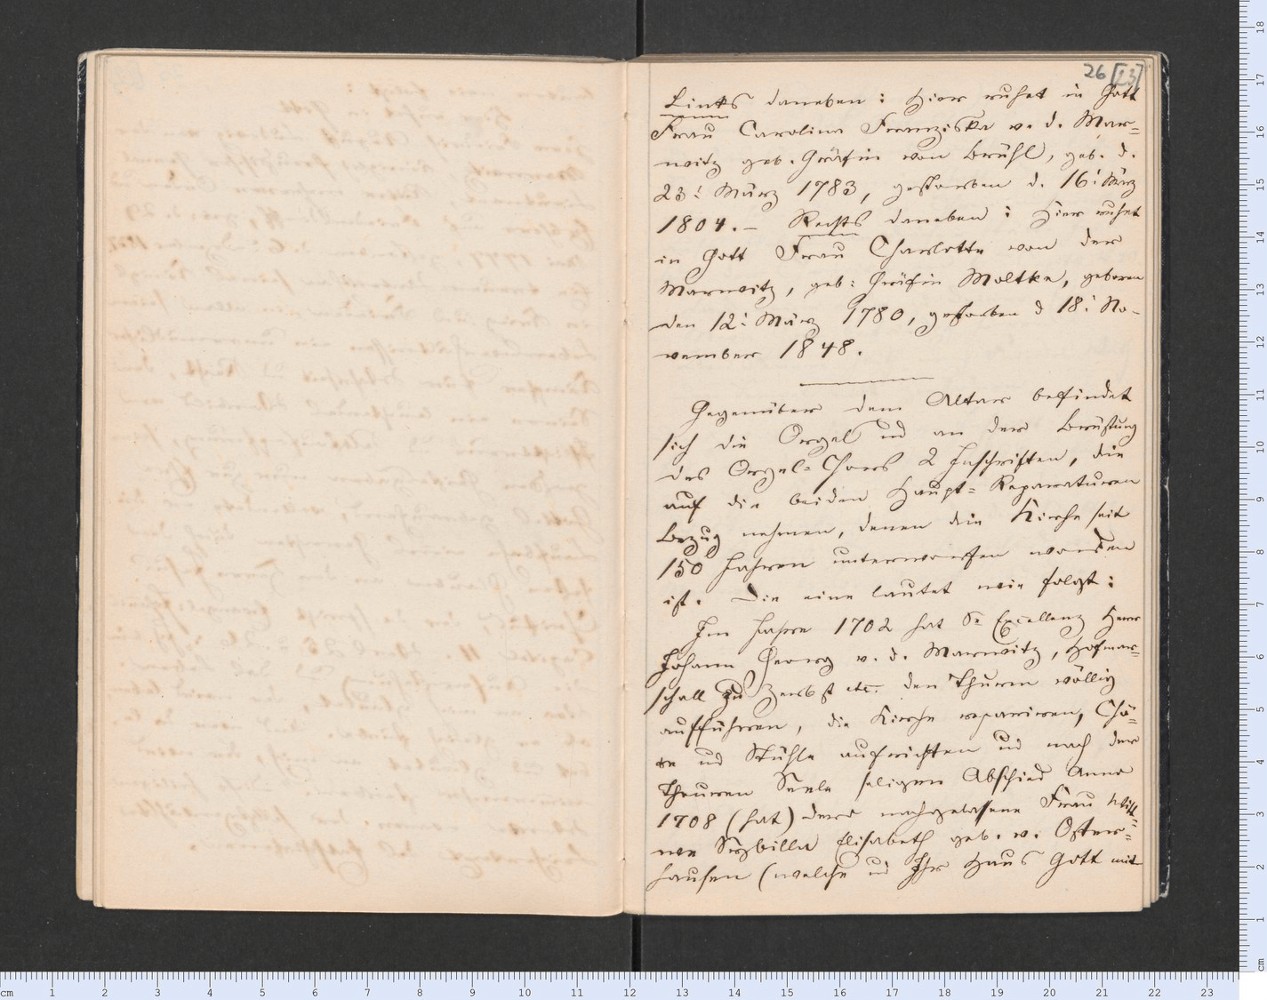 26 [23]
Links daneben: Hier ruhet in Gott
Frau Carolina Franziska v. d. Mar=
witz geb. Gräfin von Brühl, geb. d.
23t März 1783, gestorben d. 16t März
1804. – Rechts daneben: Hier ruhet
in Gott Frau Charlotte von der
Marwitz, geb: Gräfin Moltke, geboren
den 12t März 1780, gestorben d 18t No-
vember 1848.
Gegenüber dem Altar befindet
sich die Orgel und an der Brüstung
des Orgel-Chors 2 Inschriften, die
auf die beiden Haupt=Reparaturen
Bezug nehmen, denen die Kirche seit
150 Jahren unterworfen worden
ist. Die eine lautet wie folgt:
Im Jahre 1702 hat Se Excellenz Herr
Johann Georg v. d. Marwitz, Hofmar=
schall zu Zerbst etc. den Thurm völlig
aufführen, die Kirche repariren, Chö=
re und Stühle aufrichten und nach der
theuren Seele seligen Abschied Anno
1708 (hat) dero nachgelassene Frau Witt=
we Sybilla Elisabeth geb. v. Oster=
hausen (welche und Ihr Haus Gott mit